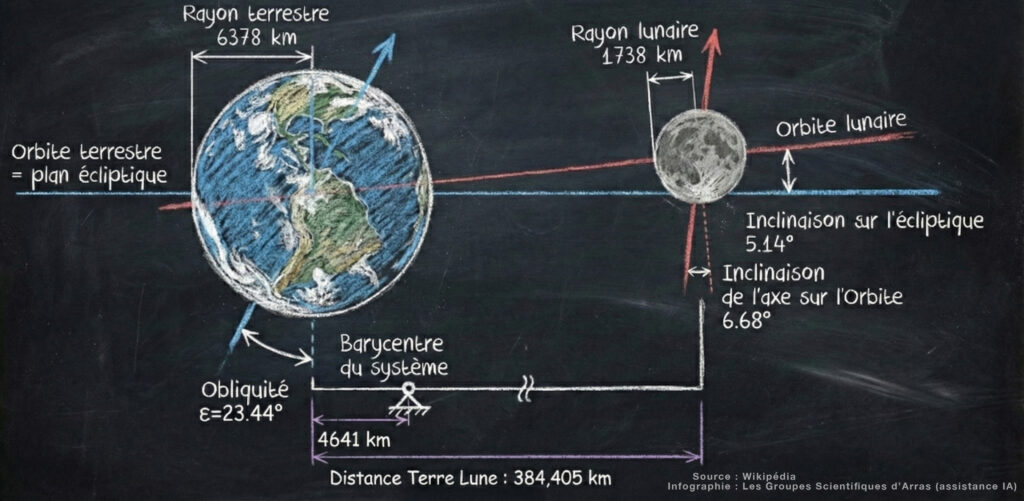 Rayon terrestre
6378 km
Rayon lunaire
1738 km
Orbite lunaire
Orbite terrestre
= plan écliptique
Inclinaison sur l'écliptique
5.14°
Inclinaison
de l'axe sur l'Orbite
6.68°
Barycentre
du système
Obliquité
ε=23.44°
4641 km
Distance Terre Lune : 384,405 km
Source : Wikipédia
Infographie : Les Groupes Scientifiques d'Arras (assistance IA)